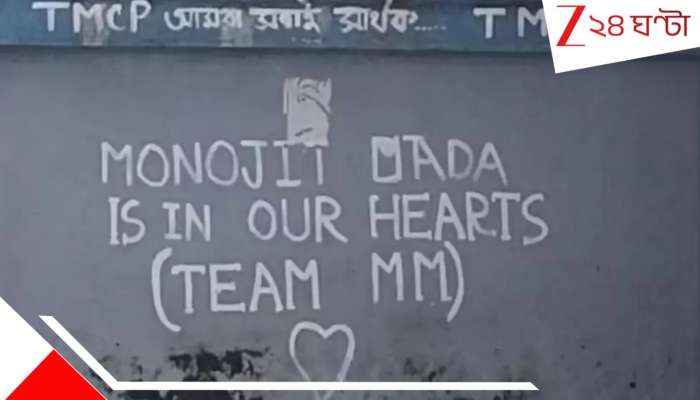 TMCP আমরা সবাই সার্থক..... TM
Z ২৪ ঘণ্টা
MONOJIT DADA
IS IN OUR HEARTS
(TEAM MM)